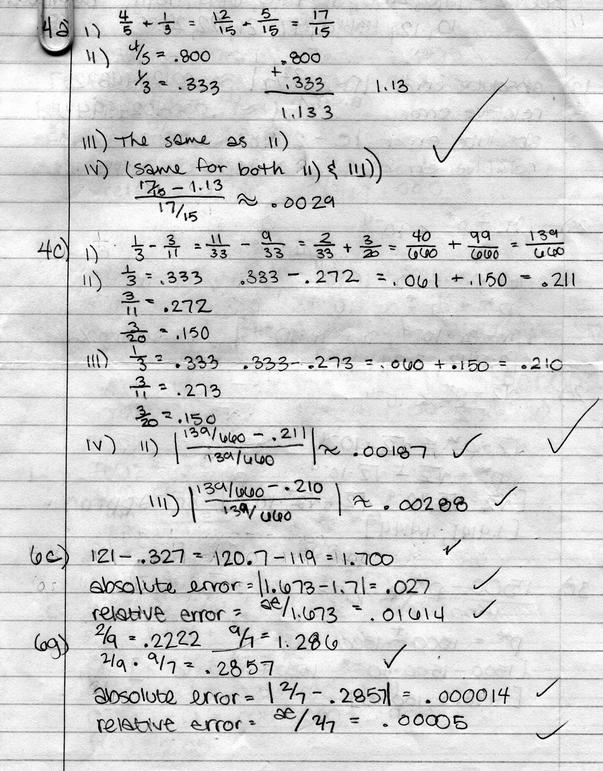 4a i) 4/5 + 1/3 = 12/15 + 5/15 = 17/15
ii) 4/5 = .800 .800
1/3 = .333 + .333 1.13
1.133
iii) The same as ii)
iv) (same for both ii) & iii))
17/15 - 1.13 / 17/15 ≈ .0029
4c) i) 1/3 - 3/11 = 11/33 - 9/33 = 2/33 + 3/20 = 40/660 + 99/660 = 139/660
ii) 1/3 = .333 .333 - .272 = .061 + .150 = .211
3/11 = .272
3/20 = .150
iii) 1/3 = .333 .333 - .273 = .060 + .150 = .210
3/11 = .273
3/20 = .150
iv) ii) |139/660 - .211 / 139/660| ≈ .00187 ✓
iii) |139/660 - .210 / 139/660| ≈ .00288 ✓
6c) 121 - .327 = 120.7 - 119 = 1.700 ✓
absolute error = |1.673 - 1.7| = .027 ✓
relative error = ae/1.673 = .01614 ✓
6g) 2/9 = .2222 9/7 = 1.286
2/9 · 9/7 = .2857 ✓
absolute error = |2/7 - .2857| = .000014 ✓
relative error = ae/2/7 = .00005 ✓